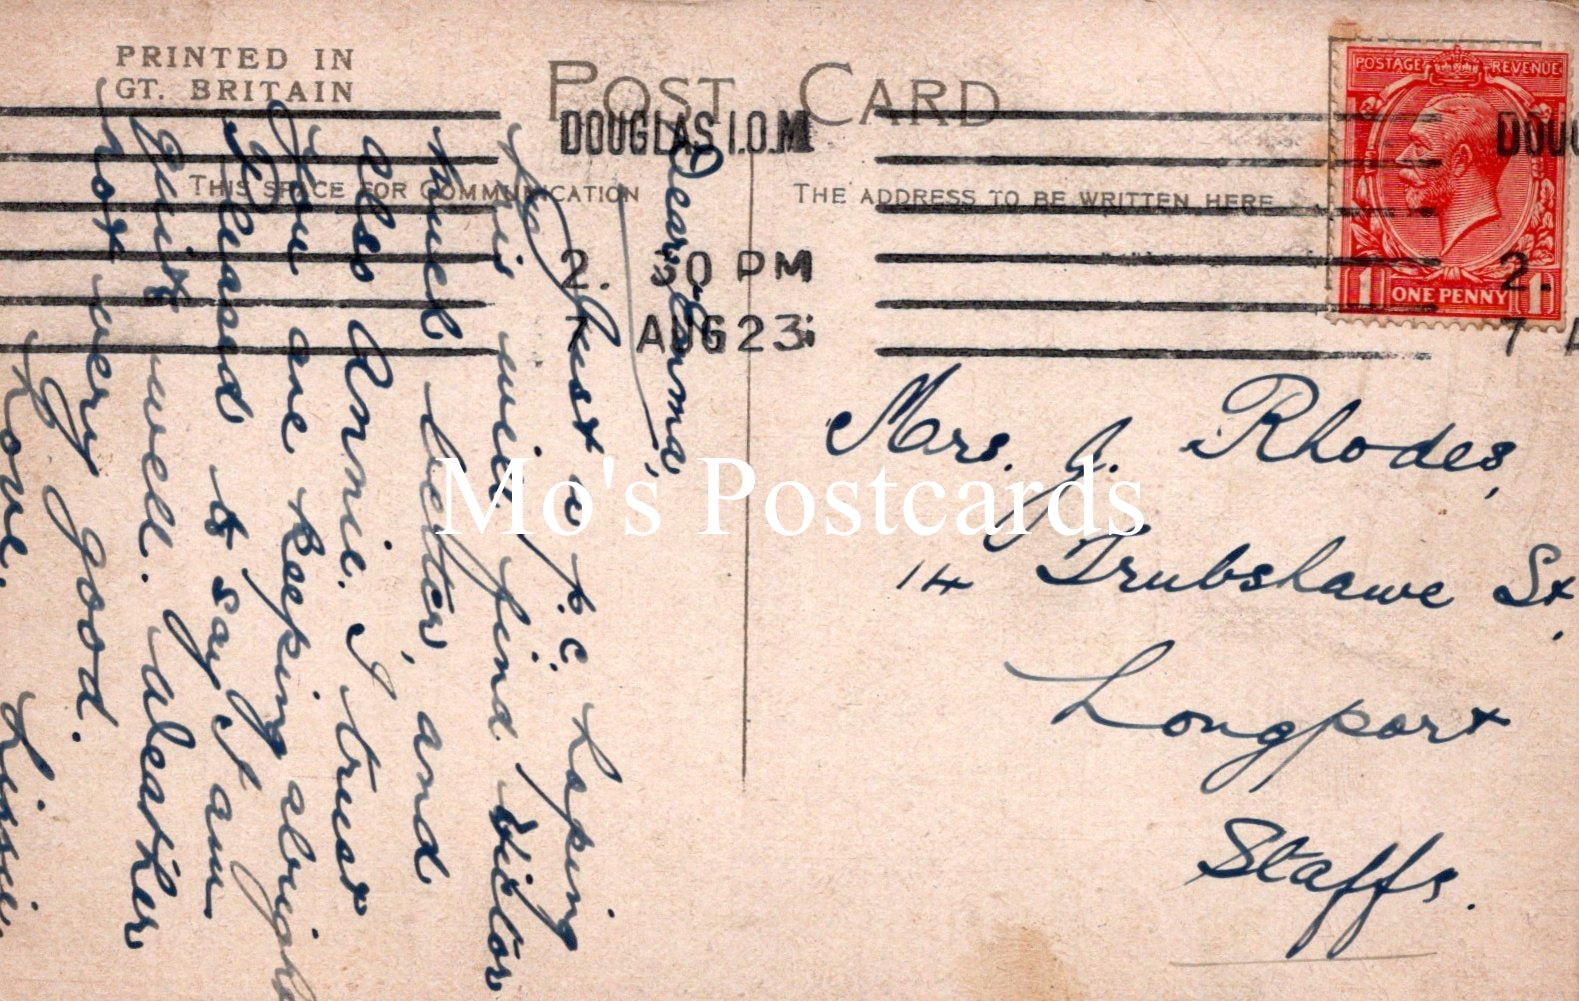 PRINTED IN
GT. BRITAIN
POST CARD
THIS SPACE FOR COMMUNICATION
THE ADDRESS TO BE WRITTEN HERE
DOUGLAS I.O.M
2. 30 PM
7 AUG 23
POSTAGE REVENUE
1 ONE PENNY 1
DOUG
2.
7 A
Dear
Just a p.c. hoping
this will find Victor
much better, and
also Annie. I trust
you are keeping alright
Pleased to say I am
quite well. Weather
not very good.
Love, Lizzie.
Mrs. J. Rhodes,
14 Trubshawe St,
Longport
Staffs.
Mo's Postcards